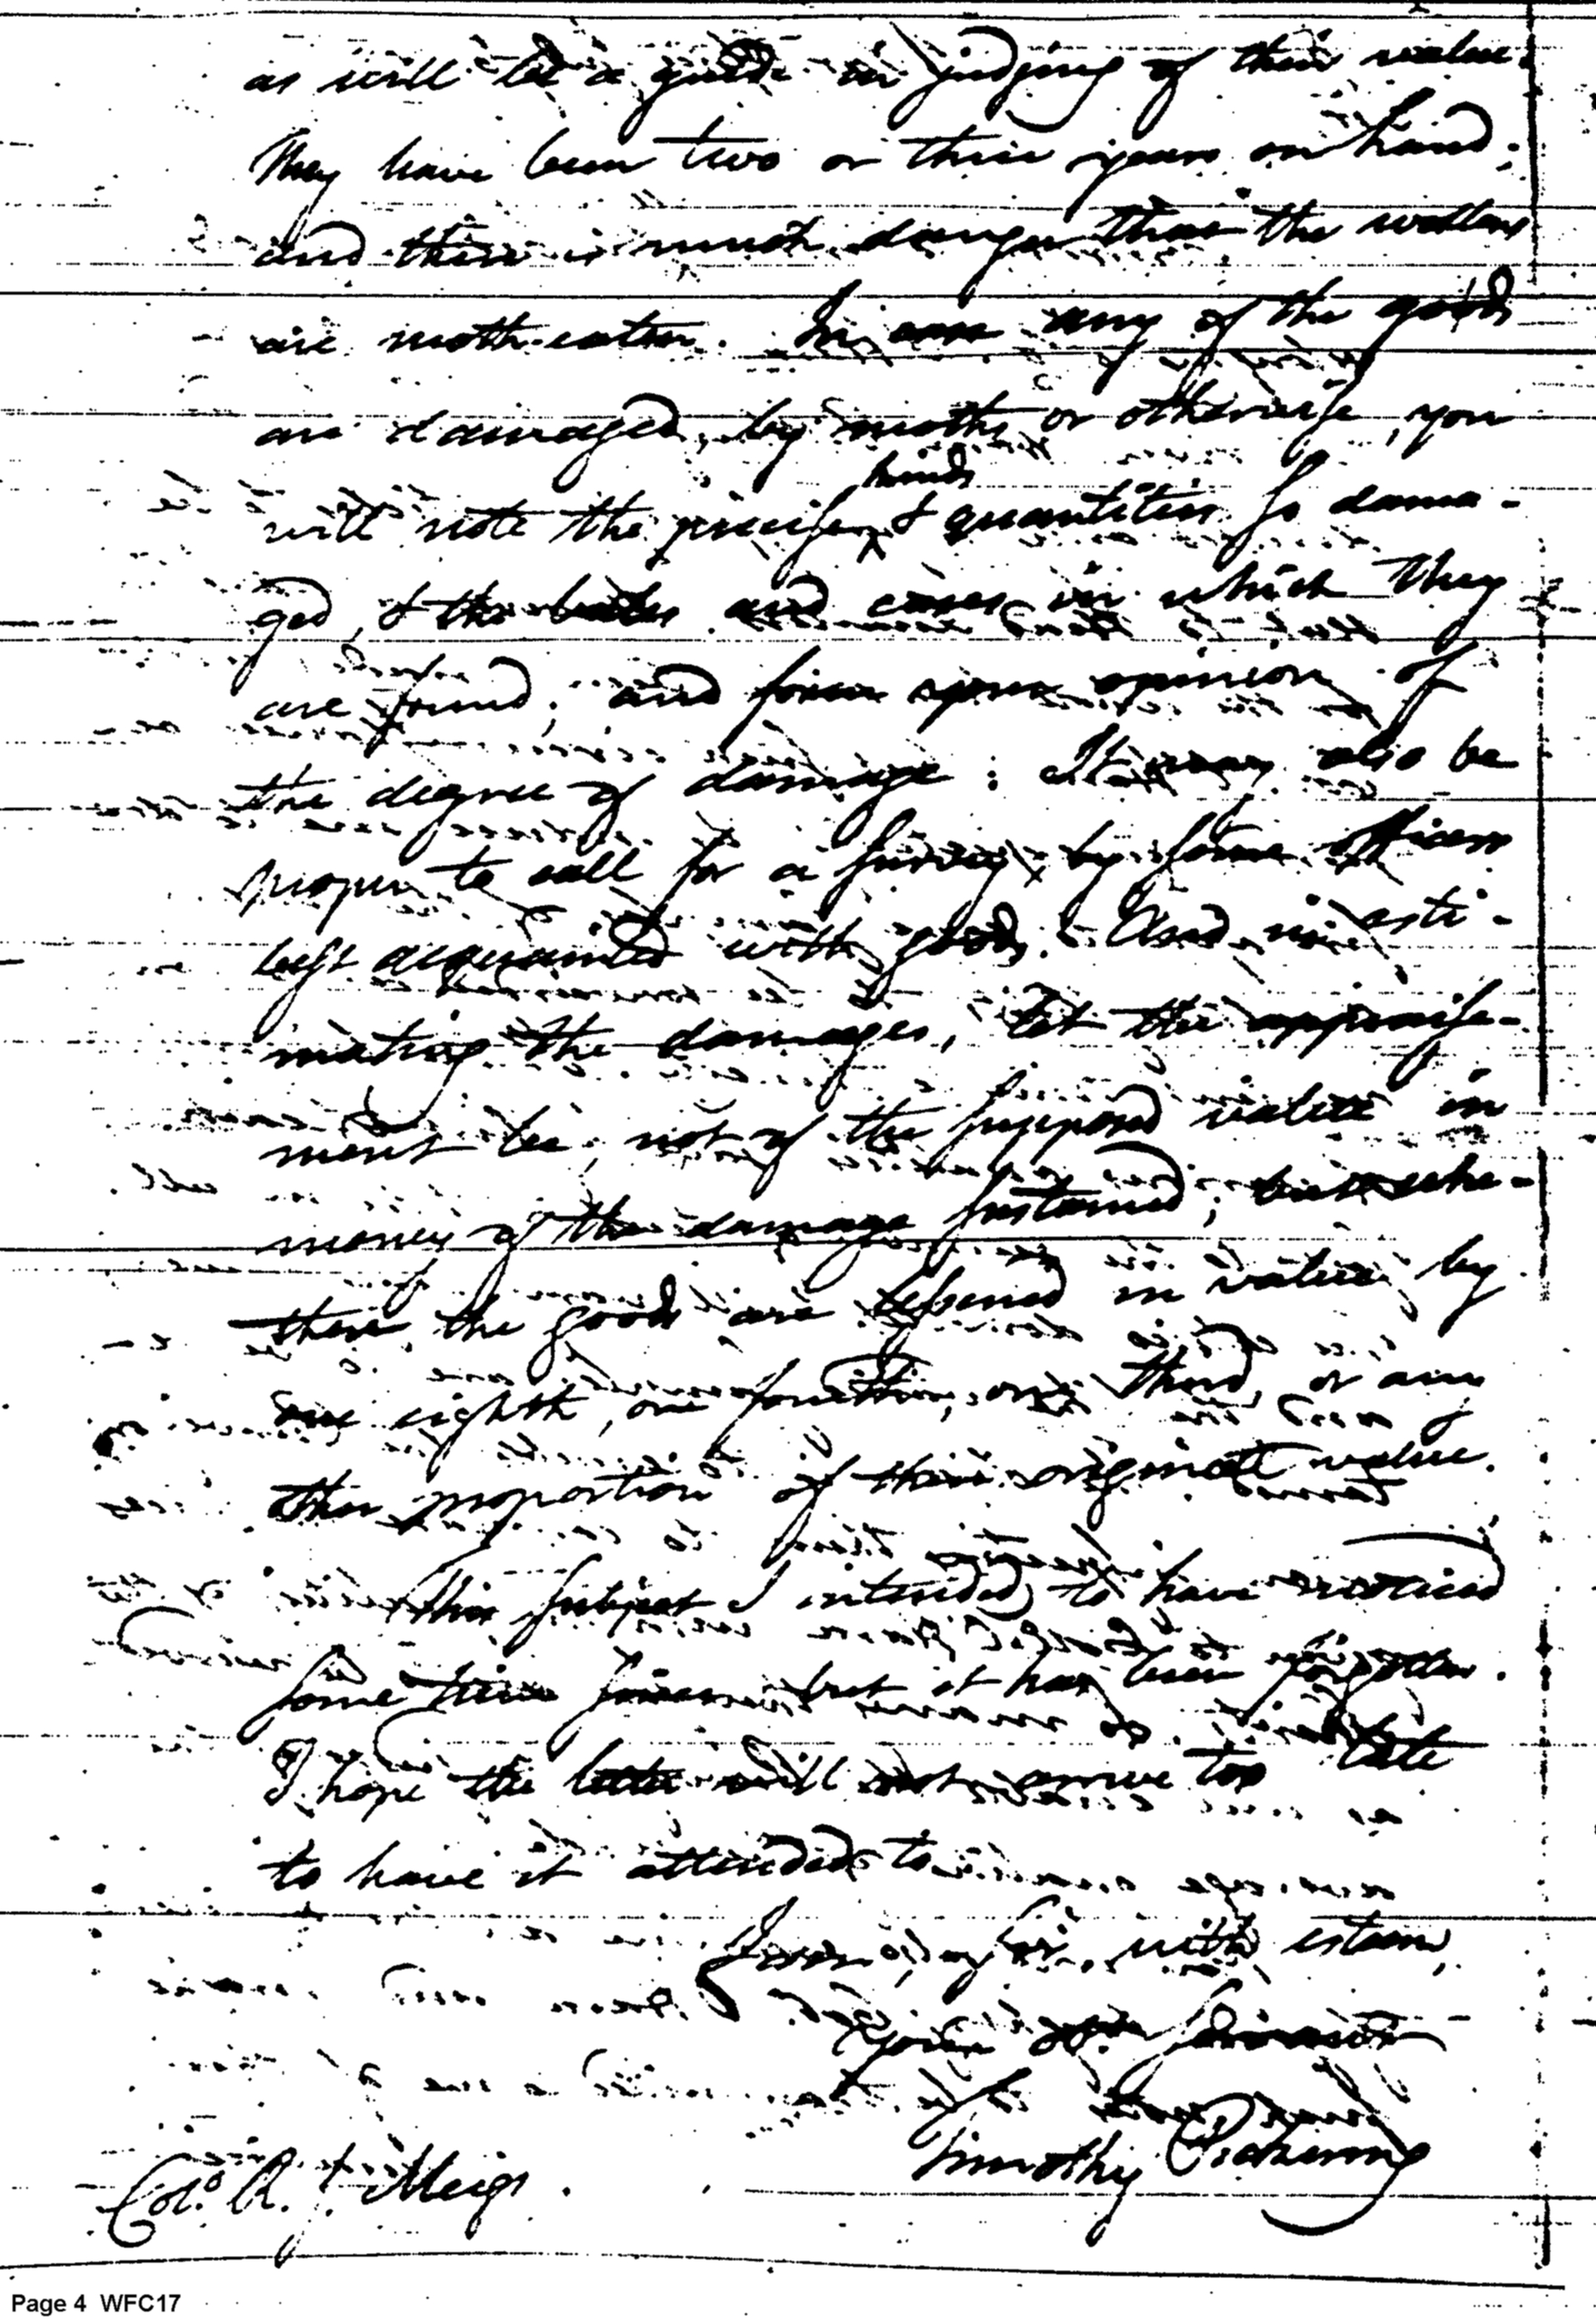 as will be a guide in judging of their value.
They have been two or three years on hand;
and there is much danger that the wollens
are moth-eaten. In case any of the goods
are damaged, by moths or otherwise, you
kinds
will note the precise & quantities so dama-
ged, & the bales and cases in which they
are found; and form your opinion of
the degree of damage: It may also be
proper to call for a survey, by some officers
best acquainted with goods. And in esti-
mating the damages, let the appraise-
ment be, not of the supposed value in
money of the damage sustained; but whe-
there the goods are lessened in value by
one eighth, one fourth, one third, or any
other proportion of their original value.
This subject I intended to have noticed
some time since but it has been forgotten.
I hope the letter will not arrive too late
to have it attended to.
I am, sir, with esteem,
your obt. servant
Timothy Pickering
Colo. R. J. Meigs.
Page 4 WFC17